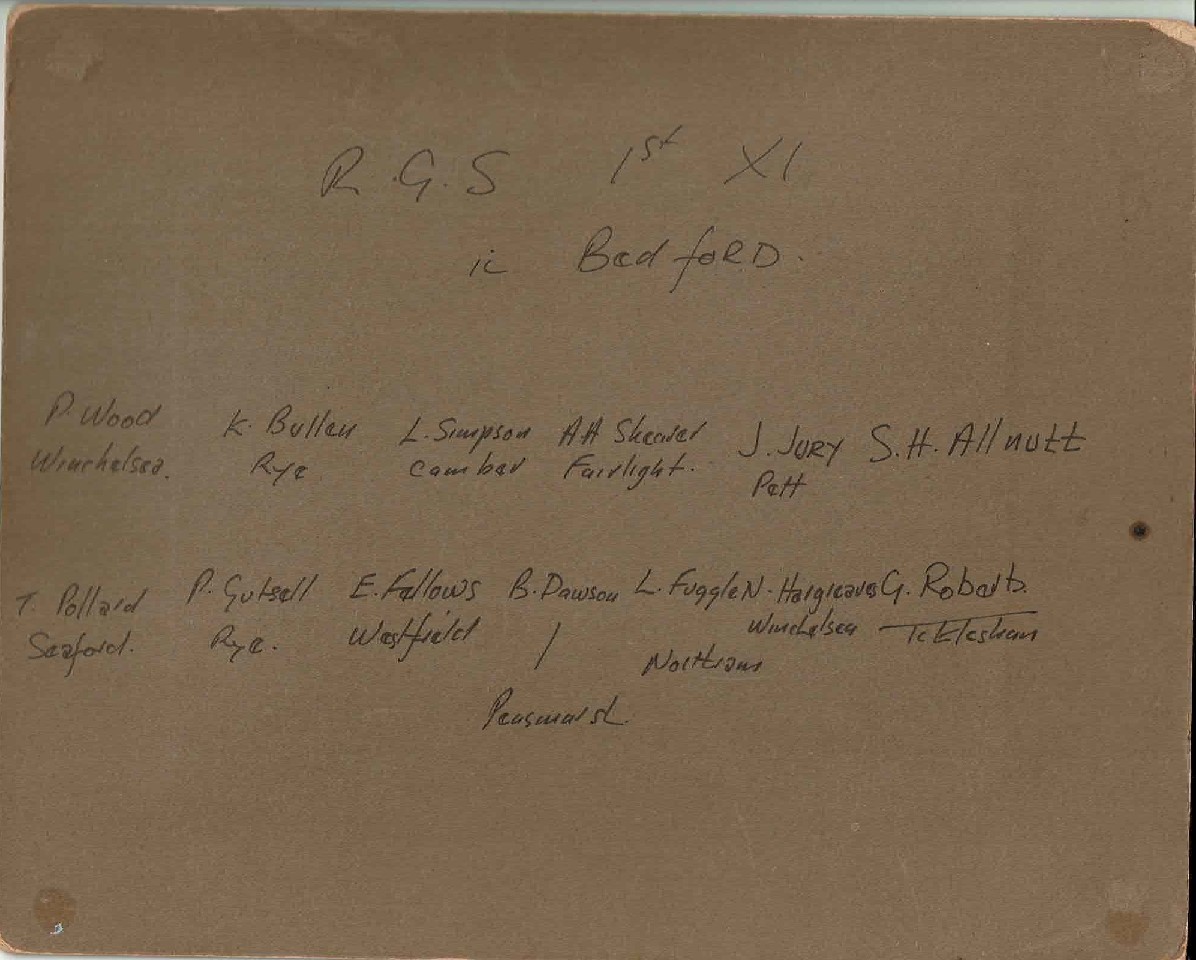 R.G.S 1st XI
in Bedford.
P. Wood K. Bullen L. Simpson A A Shearer J. JURY S.H. Allnutt
Winchelsea. Rye Camber Fairlight. Pett
T. Pollard P. Gutsell E. Fellows B. Dawson L. Fuggle N. Hargreaves G. Roberts.
Seaford. Rye. Westfield / Winchelsea Icklesham
Northiam
Peasmarsh.